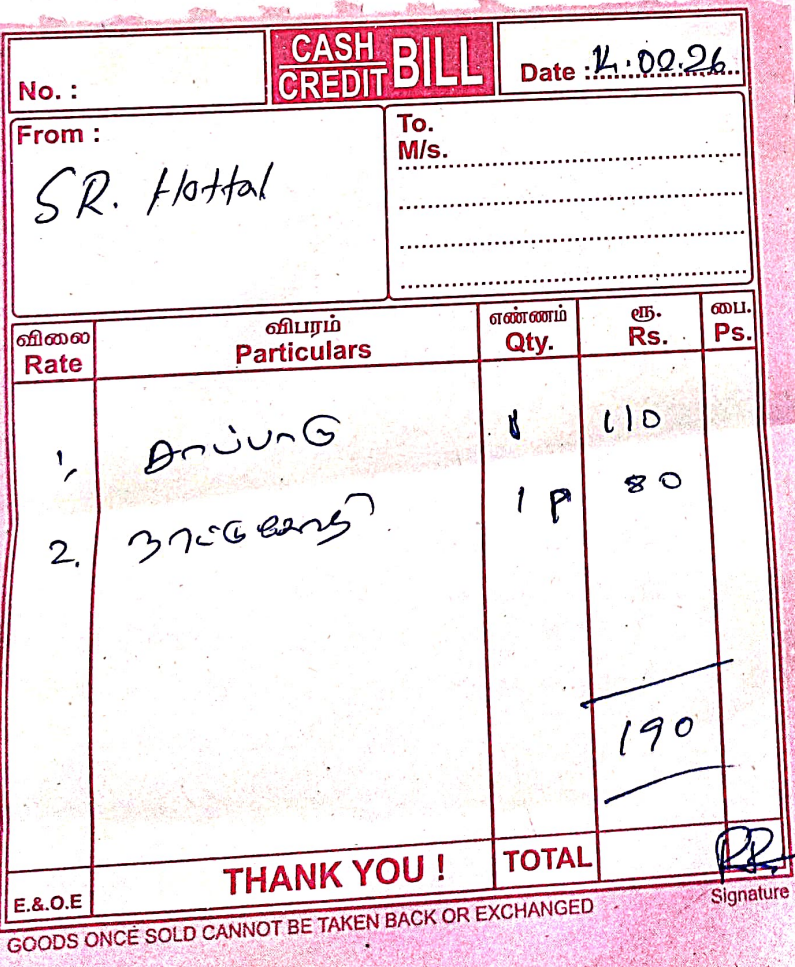 CASH
CREDIT BILL
No. :
Date : 14.02.26
From :
SR. Hottal
To.
M/s.
விலை விபரம் எண்ணம் ரூ. பை.
Rate Particulars Qty. Rs. Ps.
1, சாப்பாடு 1 110
2. நாட்டுகோழி 1 P 80
190
E.&.O.E THANK YOU ! TOTAL
Signature
GOODS ONCE SOLD CANNOT BE TAKEN BACK OR EXCHANGED